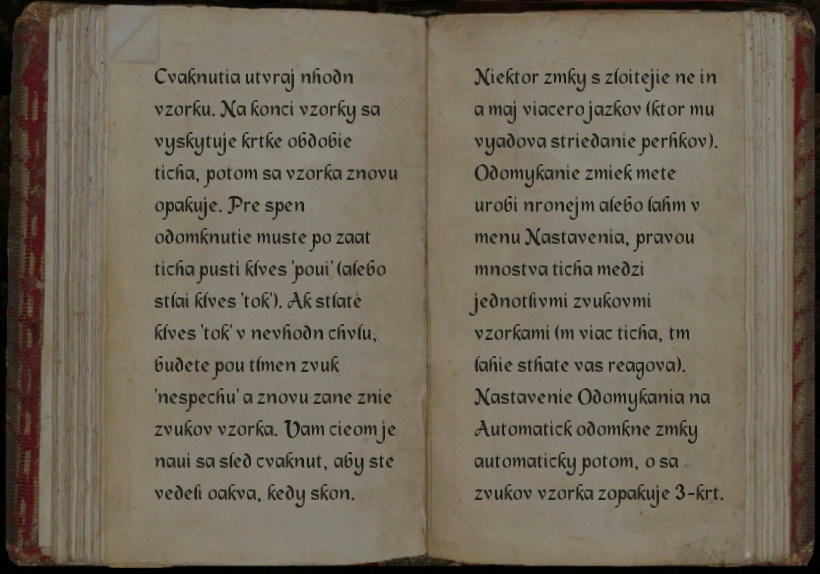 Cvaknutia utvraj nhodn
vzorku. Na konci vzorky sa
vyskytuje krtke obdobie
ticha, potom sa vzorka znovu
opakuje. Pre spen
odomknutie muste po zaat
ticha pusti klves 'poui' (alebo
stlai klves 'tok'). Ak stlate
klves 'tok' v nevhodn chvlu,
budete pou tlmen zvuk
'nespechu' a znovu zane znie
zvukov vzorka. Vam cieom je
naui sa sled cvaknut, aby ste
vedeli oakva, kedy skon.
Niektor zmky s zloitejie ne in
a maj viacero jazkov (ktor mu
vyadova striedanie perhkov).
Odomykanie zmiek mete
urobi nronejm alebo lahm v
menu Nastavenia, pravou
mnostva ticha medzi
jednotlivmi zvukovmi
vzorkami (m viac ticha, tm
lahie sthate vas reagova).
Nastavenie Odomykania na
Automatick odomkne zmky
automaticky potom, o sa
zvukov vzorka zopakuje 3-krt.